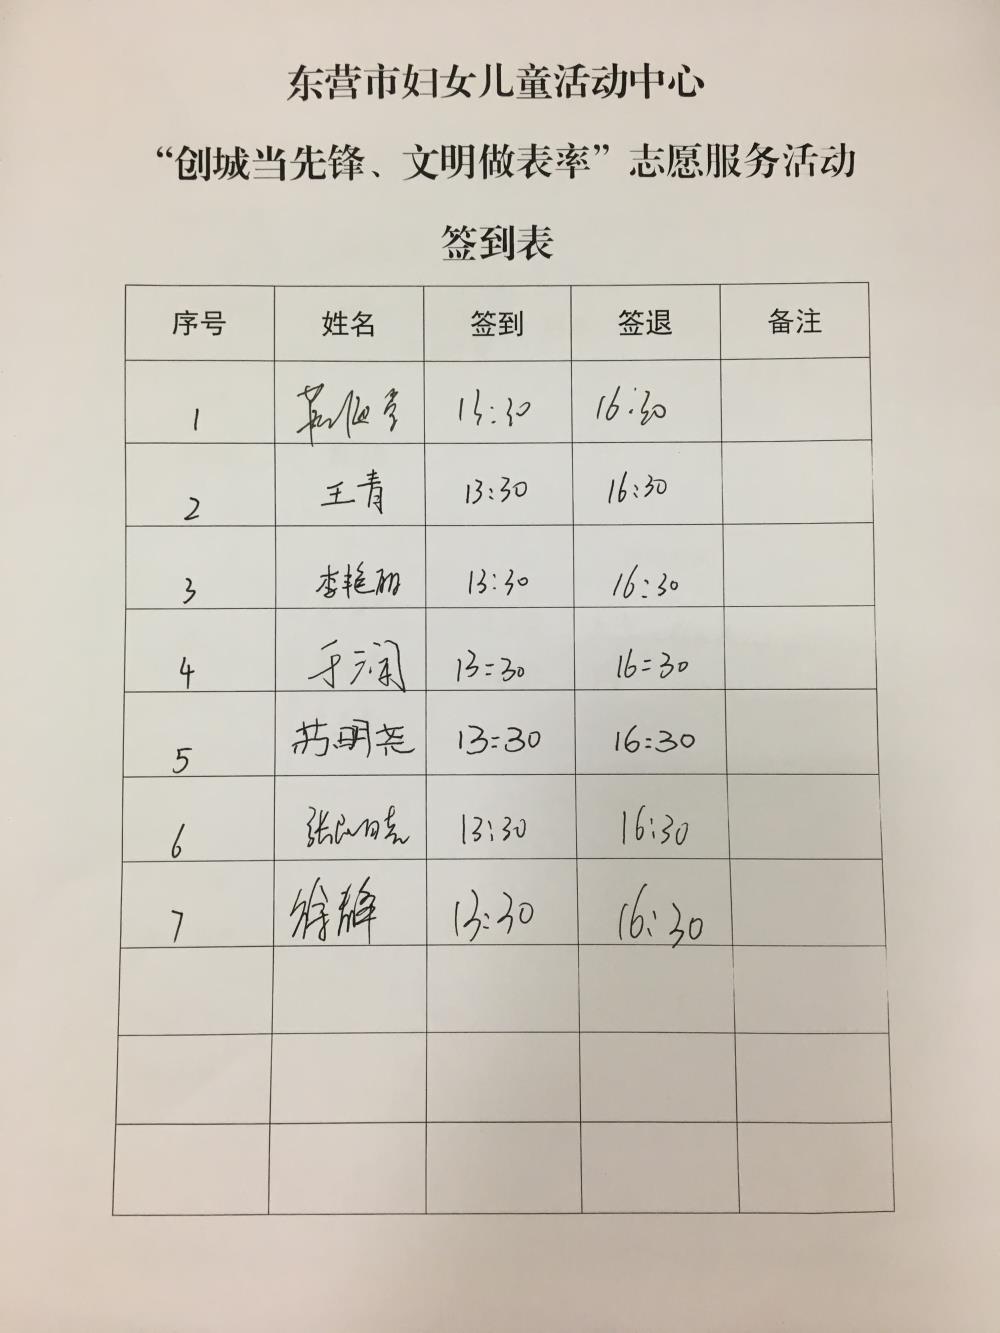 东营市妇女儿童活动中心
“创城当先锋、文明做表率”志愿服务活动
签到表
序号 姓名 签到 签退 备注
1 13:30 16:30
2 王青 13:30 16:30
3 李艳丽 13:30 16:30
4 13:30 16:30
5 13:30 16:30
6 13:30 16:30
7 徐静 13:30 16:30